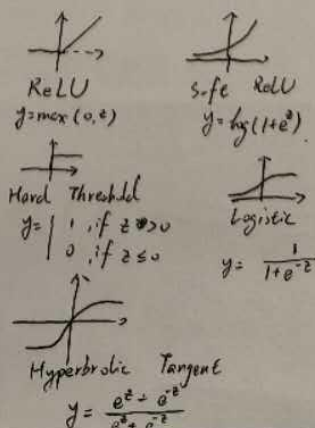 ReLU
y=max(0,z)
Softe ReLU
y=log(1+e^z)
Hard Threshold
y= 1, if z>0
0, if z≤0
Logistic
y= 1/(1+e^-z)
Hyperbrolic Tangent
y= (e^z - e^-z)/(e^z + e^-z)